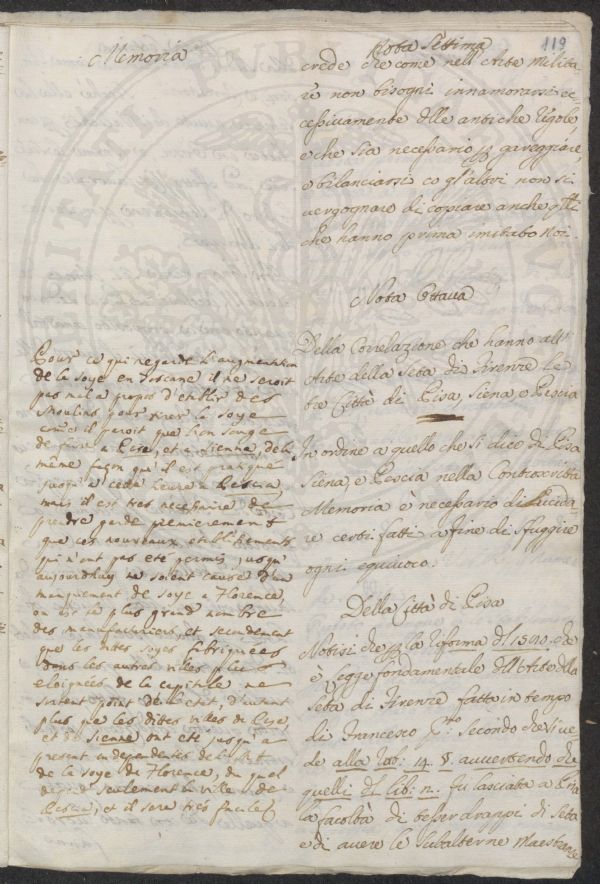 119
Memoria
Pour ce qui regarde l'augmentation
de la soye en Toscane il ne seroit
pas mal a propos d'etablir des
Moulins pour tirer la soye
come il paroit que l'on songe
de faire a Pise, et a Sienne, de la
même façon qu'il est pratiqué
jusqu'a cette heure a Pescia,
mais il est tres necessaire de
prendre garde premierement
que ces nouveaux etablissements
qui n'ont pas eté permis jusqu'
aujourdhuy ne soient cause d'un
manquement de soye a Florence,
ou est le plus grand nombre
des manufacturiers, et secondement
que les dites soyes fabriquées
dans les autres villes plus
eloignées de la capitale ne
sortent point de l'etat, d'autant
plus que les dittes villes de Pise,
et de Sienne ont eté jusqu'a
present independentes de l'Art
de la soye de Florence, du quel
depend seulement la ville de
Pescia, et il sera tres facile
Nota Settima
crede che come nell'Arte Milita-
re non bisogni innamorarsi ec-
cessivamente delle antiche regole
e che sia necessario p gareggiare,
o bilanciarsi co gl'altri non si
vergognare di copiare anche qtti
che hanno prima imitato noi.
Nota Ottava
Della Correlazione che hanno all'
Arte della Seta di Firenze le
tre Città di Pisa, Siena, e Pescia
In ordine a quello che si dice di Pisa
Siena, e Pescia nella Controscritta
Memoria è necessario di lucida-
re certi fatti a fine di sfuggire
ogni equivoco.
Della Città di Pisa
Notisi che p la riforma del 1580. che
è legge fondamentale dell'Arte della
Seta di Firenze fatta in tempo
di Francesco Secondo che si ve-
de alla 14. avvertendo che
quelli di lib: n. fu lasciata a Pisa
la facoltà di tesser drappi di seta
e di avere le subalterne Maestranze